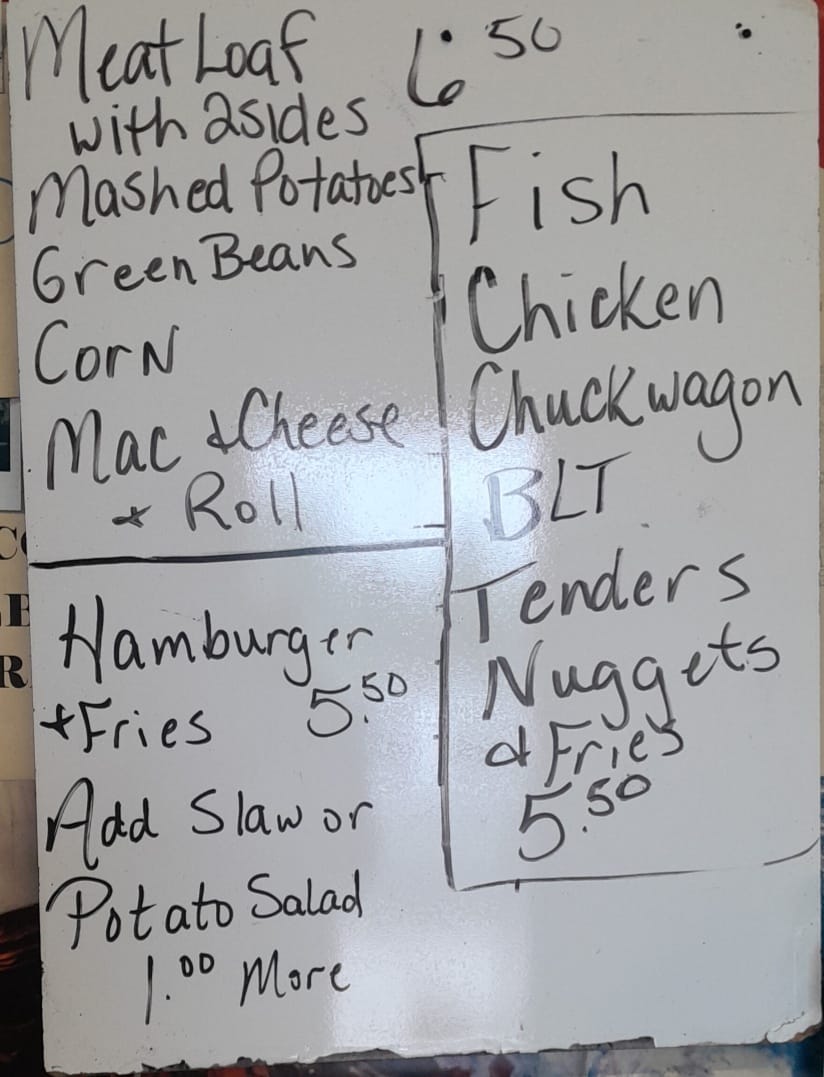 Meat Loaf 6.50
with 2sides
Mashed Potatoes
Green Beans
Corn
Mac & Cheese
+ Roll
Hamburger
+ Fries 5.50
Add Slaw or
Potato Salad
1.00 More
Fish
Chicken
Chuckwagon
BLT
Tenders
Nuggets
& Fries
5.50